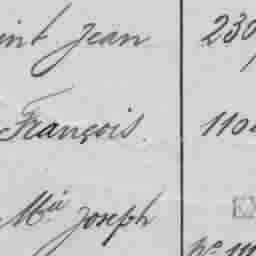 int Jean 230
François. 110
Mie Joseph